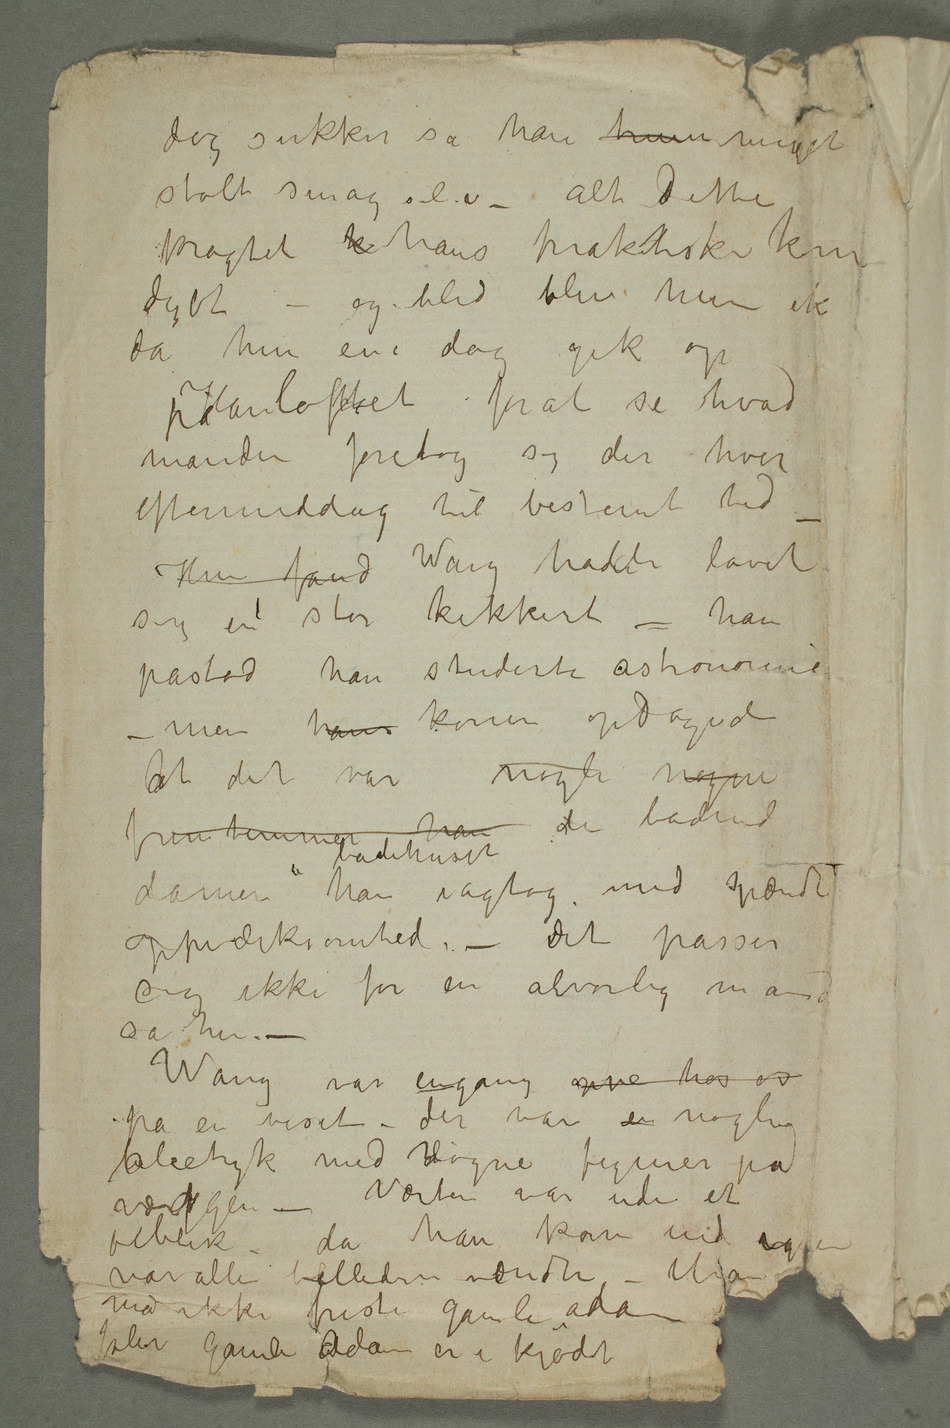 dog sikker sa han hun meget
stolt smag o.l.v – alt dette
pragtet k hans praktiske kone
dybt – og bled blev hun ik
da hun ene dag gik op
på Hanloftet forat se hvad
manden foretog sig der hver
eftermiddag til bestemt tid –
Hun fand Wang hadde lavet
sig en stor kikkert – han
pastod han studerte astronomie
– men hans konen opdaged
at det var nogle nogne
fruentimmer han de badend
damer i badehuset han iagtog med spændt
oppmærksomhed. – Det passer
sig ikke for en alvorlig mand
sa hun. –
Wang var engang oppe hos os
på en visit – der var en noglen
aletryk med nogne figurer på
væggen – Værten var ude et
øieblik – da han kom ind igjen
var alle billederne vendte – Man
må ikke friste gamle adam
for gamle Adam er i kjødet